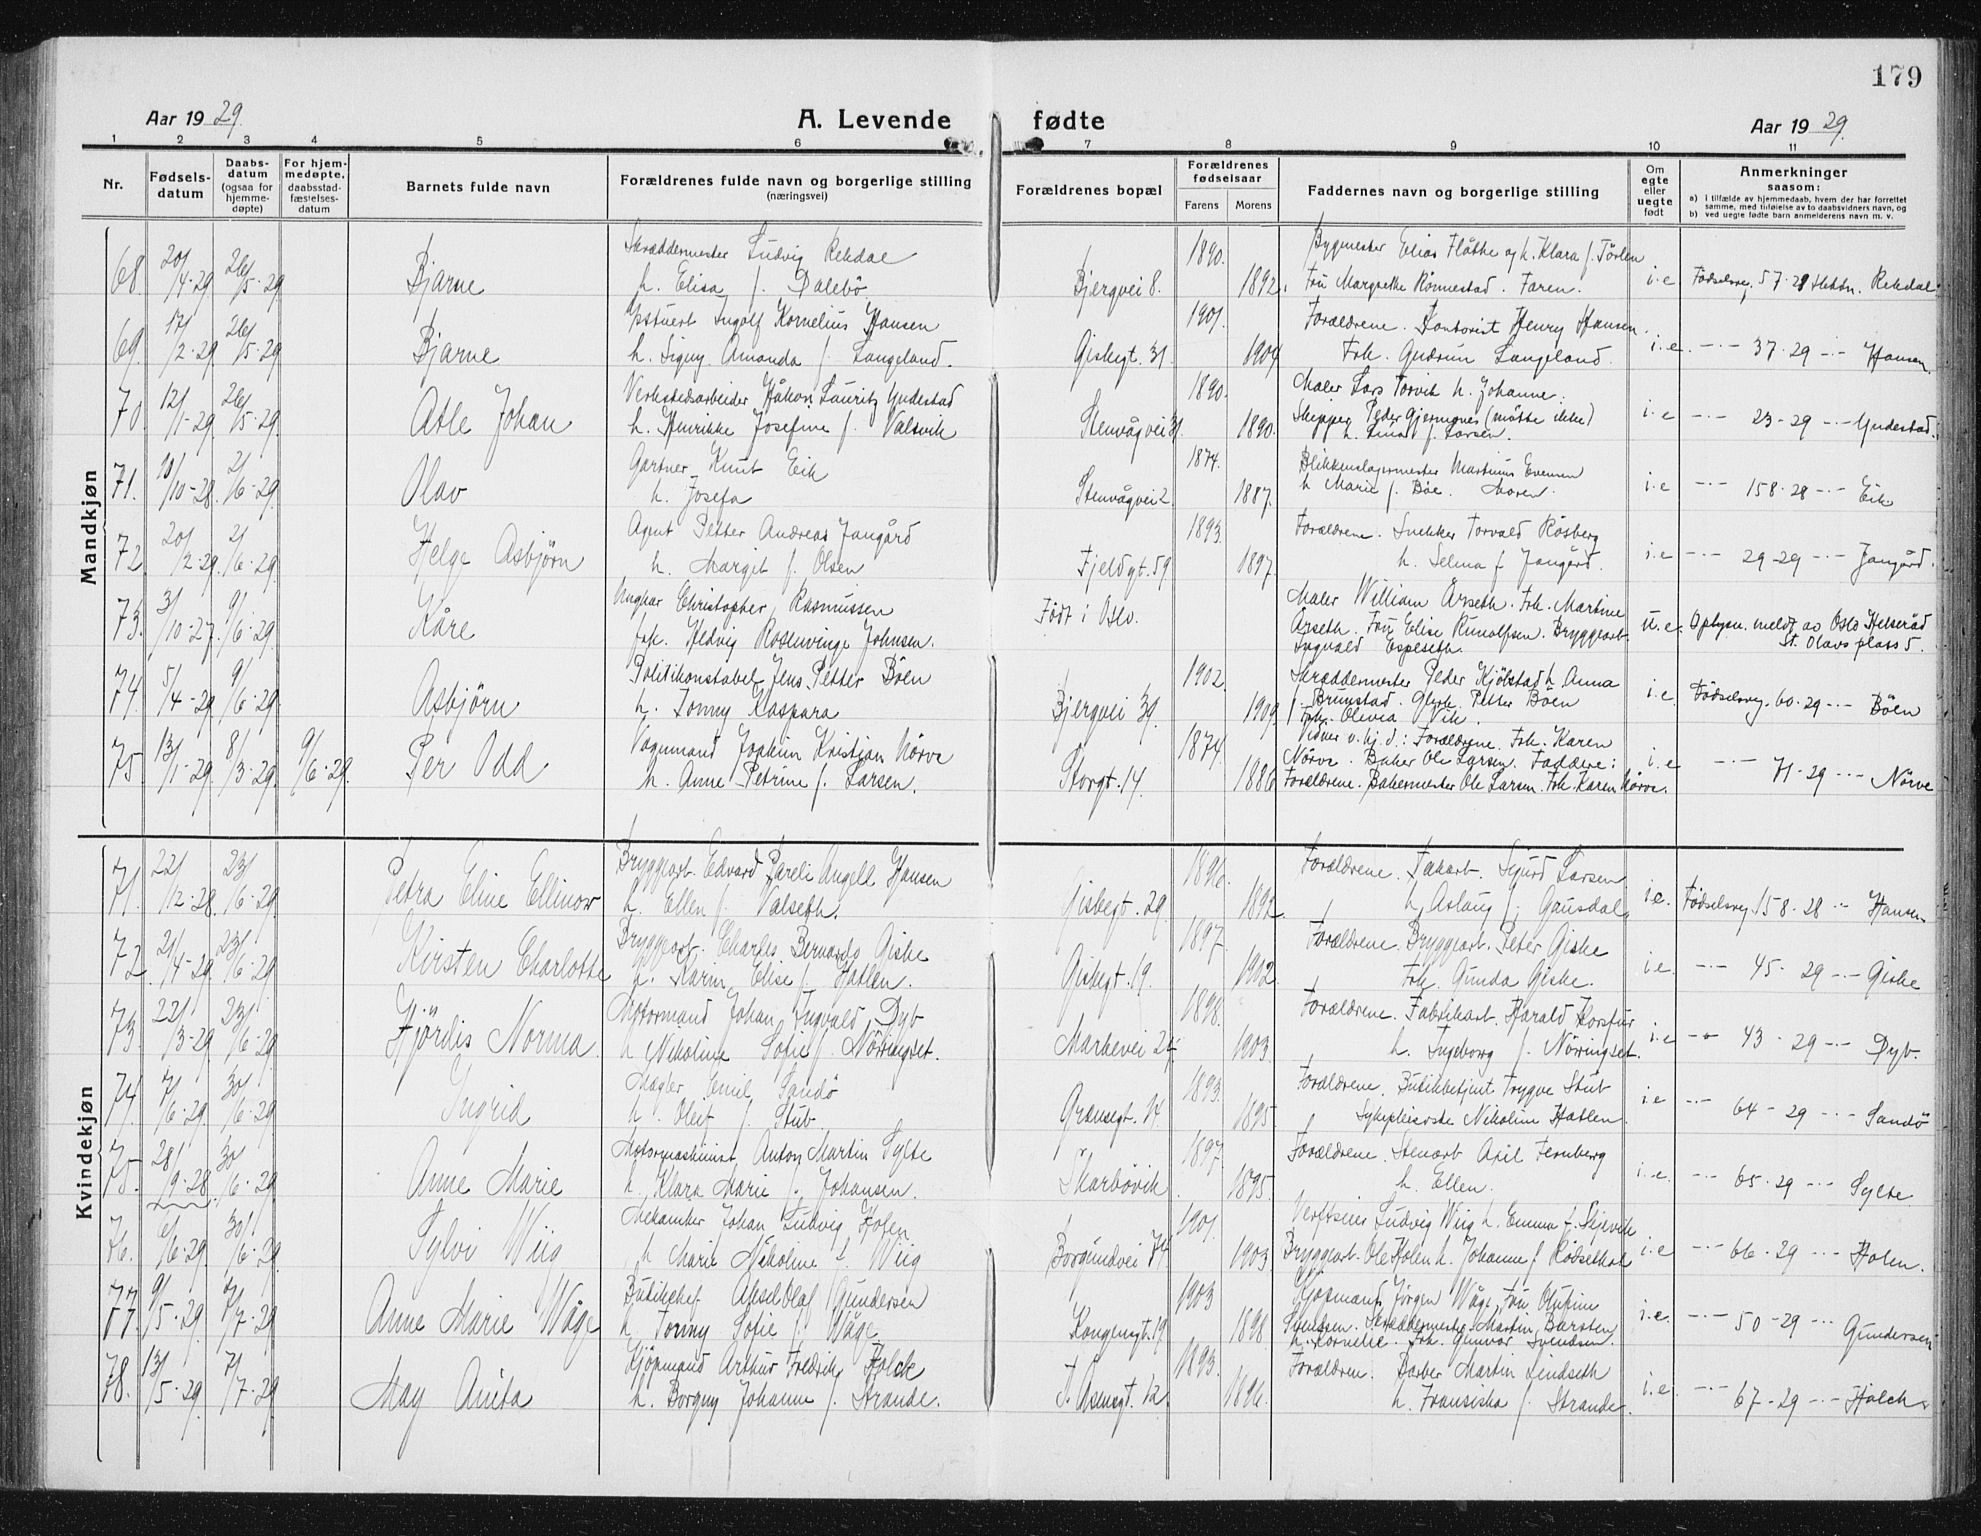 179
Aar 1929.
A. Levende fødte
Aar 1929.
1 2 3 4 5 6 7 8 9 10 11
Nr.
Fødsels-
datum
Daabs-
datum
(ogsaa for
hjemme-
døpte)
For hjem-
medøpte,
daabsstad-
fæstelses-
datum
Barnets fulde navn
Forældrenes fulde navn og borgerlige stilling
(næringsvei)
Forældrenes bopæl
Forældrenes
fødselsaar
Farens Morens
Faddernes navn og borgerlige stilling
Om
egte
eller
uegte
født
Anmerkninger
saasom:
a) i tilfælde av hjemmedaab, hvem der har forrettet
samme, med tilføielse av to daabsvidners navn, og
b) ved uegte fødte barn anmelderens navn m. v.
Mandkjøn
68. 20/4-29. 26/5-29 Bjarne
Skræddermester Ludvig Rekdal
h. Elisa f. Dalebö
Bjergvei 8. 1890. 1892.
Bygmester Elias Flåthe og h. Klara f. Törlen
Fru Margrethe Rönnestad. Faren.
i.e Fødselsreg. 57-29 Rekdal
69. 17/2-29 26/5-29 Bjarne
Ingolf Kornelius Hansen
h. Signy Amanda f. Langeland.
Giskegt. 31 1901. 1904
Forældrene. Kontorist Henry Hansen.
Frk. Gudrun Langeland.
i.e. -"- 37-29 -"- Hansen
70. 12/1-29. 26/5-29. Atle Johan
Verkstedsarbeider Håkon Lauritz Yndestad
h. Henrikke Josefine f. Valsvik
Stenvågvei 31. 1890. 1890.
Maler Lars Torvik h. Johanne.
Skipper Peder Gjermones (møtte ikke)
h. Lina f. Larsen.
i.e -"- 23-29 -"- Yndestad.
71. 10/10-28. 2/6-29. Olav
Gartner Knut Eik
h. Josefa
Stenvågvei 2. 1874. 1887.
Blikkenslagermester Martinus Evensen
h Marie f. Böe. Moren.
i.e -"- 158-28 -"- Eik
72. 20/2-29. 2/6-29. Helge Asbjörn
Agent Petter Andreas Jangård
h. Margit f. Olsen
Fjeldgt. 59 1893. 1897.
Forældrene. Snekker Torvald Rösberg
h. Selma f Jangård.
i.e -"- 29-29 -"- Jangård.
73. 3/10-27. 9/6-29. Kåre
Ungkar Christopher Rasmussen
frk. Hedvig Rosenvinge Johnsen.
Födt i Oslo.
Maler William Årseth. Frk. Martine
Årseth. Fru Elise Runolfsen. Bryggearb.
Ingvald Espeseth.
u.e. Oplysn. meldt av Oslo Helseråd
St. Olavs plass 5.
74. 5/4-29 9/6-29 Asbjörn
Politikonstabel Jens Petter Böen
h. Jonny Kaspara
Bjergvei 39. 1902. 1909
Skræddermester Peder Kjölstad h. Anna
f. Brunstad. Petter Böen
Frk. Olivia Vik.
i.e Fødselsreg. 60-29 -"- Böen
75. 13/1-29. 8/3-29. 9/6-29. Per Odd
Vognmand Joakim Kristian Nörve
h. Anne Petrine f. Larsen.
Storgt. 14. 1874. 1886
Vidner v. hj. d.: Forældrene. Frk. Karen
Nörve. Baker Ole Larsen. Faddere:
Forældrene. Bakermester Ole Larsen. Frk. Karen Nörve.
i.e -"- 71-29 -"- Nörve
Kvindekjøn
71. 22/12-28. 23/6-29 Petra Eline Ellinor
Bryggearb. Edvard Pareli Angell Hansen
h. Ellen f. Valseth.
Giskegt. 29. 1896. 1892
Forældrene. Fabarb. Sjurd Larsen
h. Aslaug f. Gausdal
i.e. Fødselsreg. 158-28 -"- Hansen
72. 21/4-29. 23/6-29 Kirsten Charlotte
Bryggearb. Charles Bernardo Giske
h. Karin Elise f. Hatlen.
Giskegt. 19. 1897. 1902.
Forældrene. Bryggearb. Peter Giske
Frk. Gunda Giske.
i.e. -"- 45-29 -"- Giske
73. 22/3-29 23/6-29 Hjördis Norma.
Motormand Johan Ingvald Dyb
h Nikoline Sofie f. Nörringset.
Markevei 24 1898. 1903.
Forældrene. Fabrikarb. Harald Korsfur
h. Ingeborg f. Nörringset.
i.e -"- 43-29 -"- Dyb.
74. 7/6-29. 30/6-29 Ingrid
Mægler Emil Sandö
h. Oluf f. Stub.
Grænsegt. 14. 1893. 1895.
Forældrene. Butikbetjent Trygve Stub
Sykepleierske Nikoline Hatlen.
i.e -"- 64-29 -"- Sandö
75. 28/9-28. 30/6-29 Anne Marie
Motormaskinist Anton Martin Sylte
h. Klara Marie f. Johansen.
Skarbövik 1897. 1895.
Forældrene. Stenarb Axil Fernberg
h. Ellen.
i.e. -"- 65-29 -"- Sylte
76. 6/6-29. 30/6-29. Sylvi Wiig
Mekaniker Johan Ludvig Holen
h Marie Nikoline f. Wiig
Borgundvei 74 1901. 1903
Verftseier Ludvig Wiig h. Emma f. Skjevik
Bryggearb. Ole Holen h. Johanne f. Rödseth
i.e -"- 66-29 -"- Holen.
77. 9/5-29. 7/7-29 Anne Marie Wåge
Butikchef Aksel Olaf Gundersen
h Tonny Sofie f. Wåge.
Kongensgt. 19 1903 1898
Kjöpmand Jörgen Wåge. Fru Olufine
Svendsen. Skreddermester Martin Barsten
h. Kornelie. Frk. Gunvor Svendsen.
i.e. -"- 50-29 -"- Gundersen
78. 13/5-29. 7/7-29 May Anita
Kjöpmand Arthur Fredrik Holck
h. Borgny Johanne f. Strande.
Aasensgt. 12 1893. 1896.
Forældren. Barber Martin Lindseth
h. Fransiska f. Strande.
i.e. -"- 67-29 -"- Holck